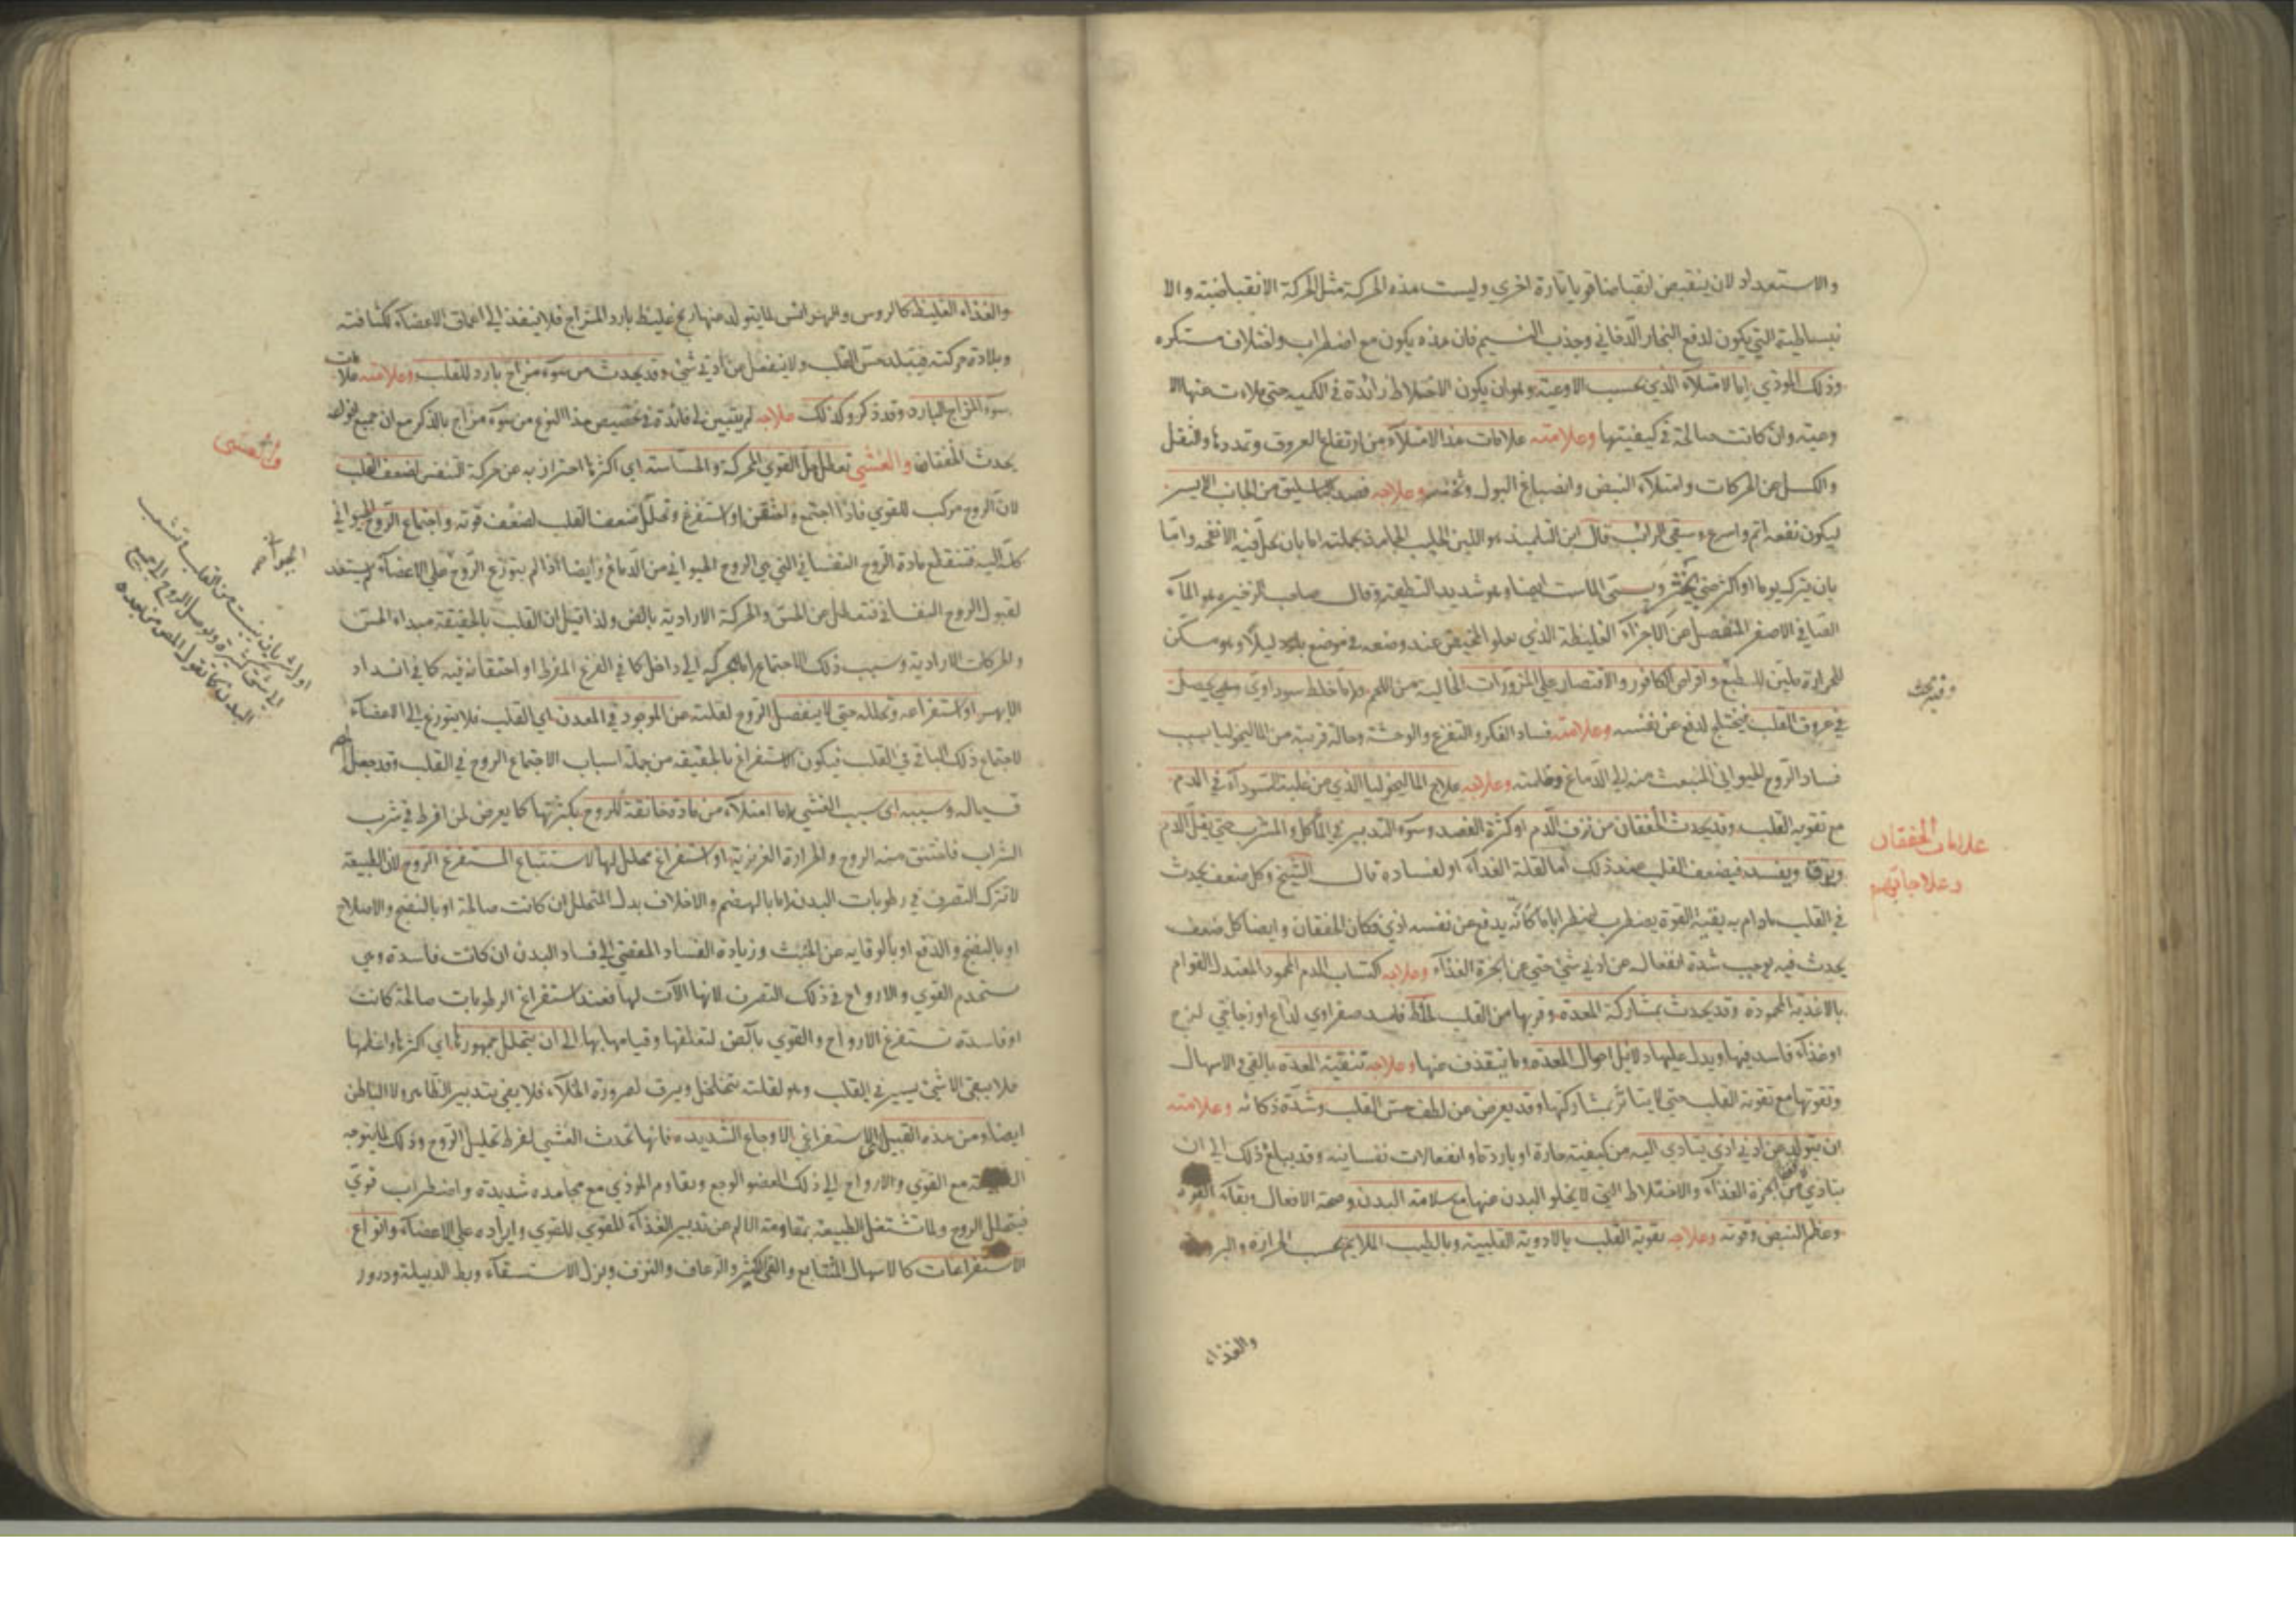 والاستعداد لان ينقبض انقباضا قويا تارة اخرى وليست هذه الحركة مثل الحركة الانقباضية والا
نبساطية التي يكون لدفع البخار الدخاني وجذب النسيم فان هذه يكون مع اضطراب واختلاف مستكره
وذلك الموذي اما الامتلاء الذي بحسب الاوعية وهو ان يكون الاخلاط زائدة في الكمية حتى ملاءت منها الا
وعية وان كانت صالحة في كيفيتها وعلامته علامات هذا الامتلاء من ارتفاع العروق وتمددها والثقل
والكسل عن الحركات وامتلاء النبض وانصباغ البول وثخنه وعلاجه فصد الباسليق من الجانب الايسر
ليكون نفعه اتم واسرع وسقي الرائب قال ابن التلميذ هو اللبن الحليب الجامد بجملته اما بان يجعل فيه الانفحة واما
بان يترك يوما او اكثر حتى يخثر ويسمى الماست ايضا وهو شديد التطفية وقال صاحب الذخيرة هو الماء
الصافي الاصفر المنفصل من الاجزاء الغليظة الذي يعلو المخيض عند وضعه في موضع بارد ليلا وهو مسكن
للحرارة ملين للطبع واقراص الكافور والاقتصار على المزورات الخالية من اللحم واما خلط سوداوي يحصل
في عروق القلب فيختلج لدفع عن نفسه وعلامته فساد الفكر والتفزع والوحشة وحالة قريبة من الماليخوليا بسبب
فساد الروح الحيواني المنبعث منه الى الدماغ وظلمته وعلاجه علاج الماليخوليا الذي من غلبة السوداء في الدم
مع تقوية القلب وقد يحدث الخفقان من نزف الدم او كثرة الفصد وسوء التدبير في الماكل والمشرب حتى يقل الدم
ويرق ويفسد فيضعف القلب عند ذلك اما لقلة الغذاء او لفساده قال الشيخ وكل ضعف يحدث
في القلب مادام به بقية القوة يضطرب اضطرابا ما كانه يدفع عن نفسه اذى فكان الخفقان وايضا كل ضعف
يحدث فيه يوجب شدة انفعاله عن ادنى شيء حتى عن ابخرة الغذاء وعلاجه اكتساب الدم المحمود المعتدل القوام
بالاغذية المحمودة وقد يحدث بمشاركة المعدة وقربها من القلب لخلط فاسد صفراوي لذاع او زجاجي لزج
او غذاء فاسد فيها ويدل عليها دلائل احوال المعدة وما ينقذف منها وعلاجه تنقية المعدة بالقيء والاسهال
وتقويتها مع تقوية القلب حتى لا يتاثر بمشاركتها وقد يعرض من لطف حس القلب وشدة ذكائه وعلامته
ان يتولد من ادنى اذى يتادى اليه من كيفية حارة او باردة او انفعالات نفسانية وقد يبلغ ذلك الى ان
يتاذى من ابخرة الغذاء والاخلاط التي لا يخلو البدن عنها مع سلامة البدن وصحة الافعال وبقاء القوة
وعظم النبض وقوته وعلاجه تقوية القلب بالادوية القلبية وبالطيب الملايم بحسب الحرارة والبرودة
والغذاء
وفيه بحث
علامات الخفقان
وعلاجاتهم
والغذاء الغليظ كالروس والهرائس لما يتولد منها ريح غليظ بارد المزاج فلا ينفذ الى اعماق الاعضاء لكثافته
وبلادة حركته فيتبلد حس القلب ولا ينفعل من ادنى شيء وقد يحدث من سوء مزاج بارد للقلب وعلامته علامات
سوء المزاج البارد وقد ذكر وكذلك علاجه لم يتبين لي فائدة في تخصيص هذا النوع من سوء مزاج بالذكر مع ان جميع انواعه
يحدث الخفقان والغشي تعطل جل القوى المحركة والحساسة اي اكثرها احترازا به عن حركة التنفس لضعف القلب
لان الروح مركب للقوى فاذا اجتمع واختنق او استفرغ وتحلل ضعف القلب لضعف قوته واجتماع الروح الحيواني
كله اليه فتنقطع مادة الروح النفساني التي هي الروح الحيواني من الدماغ وايضا اذا لم يتوزع الروح على الاعضاء لم يستعد
لقبول الروح النفساني فتتعطل عن الحس والحركة الارادية بالعرض ولذا قيل ان القلب بالحقيقة مبداء الحس
والحركات الارادية وسبب ذلك الاجتماع اما لحركة الى داخل كما في الفزع المفرط او احتقانه فيه كما في انسداد
الابهر او استفراغه وتحلله حتى لا ينفصل الروح لقلته عن الموجود في المعدن اي القلب فلا يتوزع الى الاعضاء
لاجتماع ذلك الباقي في القلب فيكون الاستفراغ بالحقيقة من جملة اسباب الاجتماع الروح في القلب وقد جعله المص
قسيما له وسببه اي سبب الغشي اما امتلاء من مادة خانقة للروح بكثرتها كما يعرض لمن افرط في شرب
الشراب فاختنق منه الروح والحرارة الغريزية او استفراغ محلل لها لاستتباع المستفرغ الروح لان الطبيعة
لا تترك التصرف في رطوبات البدن اما بالهضم والاخلاف بدل المتحلل ان كانت صالحة او بالنضج والاصلاح
او بالنضج والدفع او بالوقاية عن الخبث وزيادة الفساد المفضي الى فساد البدن ان كانت فاسدة وهي
تستخدم القوى والارواح في ذلك التصرف لانها الآت لها فعند استفراغ الرطوبات صالحة كانت
او فاسدة تستفرغ الارواح والقوى بالعرض لتعلقها وقيامها بها الى ان يتحلل جمهورها اي اكثرها واعظمها
فلا يبقى الا شيء يسير في القلب وهو لقلته يتخلخل ويرق لضرورة الخلاء فلا يفي بتدبير الظاهر ولا الباطن
ايضا ومن هذه القبيل اي الاستفراغي الاوجاع الشديدة فانها تحدث الغشي لفرط تحليل الروح وذلك لما يتوجه
الطبيعة مع القوى والارواح الى ذلك العضو الوجع وتقاوم الموذي مع مجاهدة شديدة واضطراب قوي
فيتحلل الروح ولما تشتغل الطبيعة بمقاومة الالم عن تدبير الغذاء المقوي للقوى وايراده على الاعضاء وانواع
الاستفراغات كالاسهال المتتابع والقيء الكثير والرعاف والنزف وبزل الاستسقاء وبط الدبيلة ودرور
في الغشي